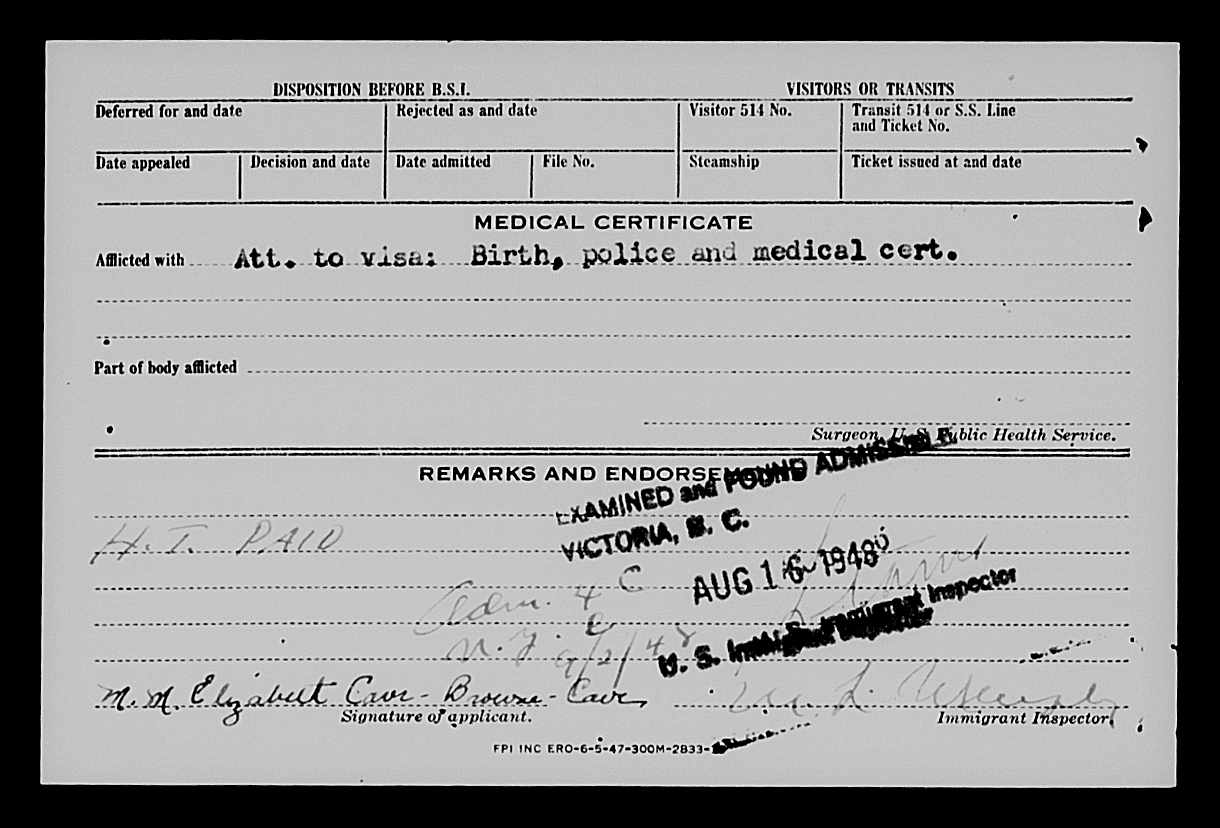 DISPOSITION BEFORE B.S.I.
VISITORS OR TRANSITS
Deferred for and date
Rejected as and date
Visitor 514 No.
Transit 514 or S.S. Line
and Ticket No.
Date appealed
Decision and date
Date admitted
File No.
Steamship
Ticket issued at and date
MEDICAL CERTIFICATE
Afflicted with Att. to visa: Birth, police and medical cert.
Part of body afflicted
Surgeon, U. S. Public Health Service.
REMARKS AND ENDORSEMENTS
EXAMINED and FOUND ADMISSIBLE
VICTORIA, B. C.
H. T. PAID
AUG 16 1948
Adm. 4 C
9/2/48
U. S. Immigrant Inspector
M. M. Elizabeth Cave-Browne-Cave
Signature of applicant.
Immigrant Inspector.
FPI INC ERO-6-5-47-300M-2833-